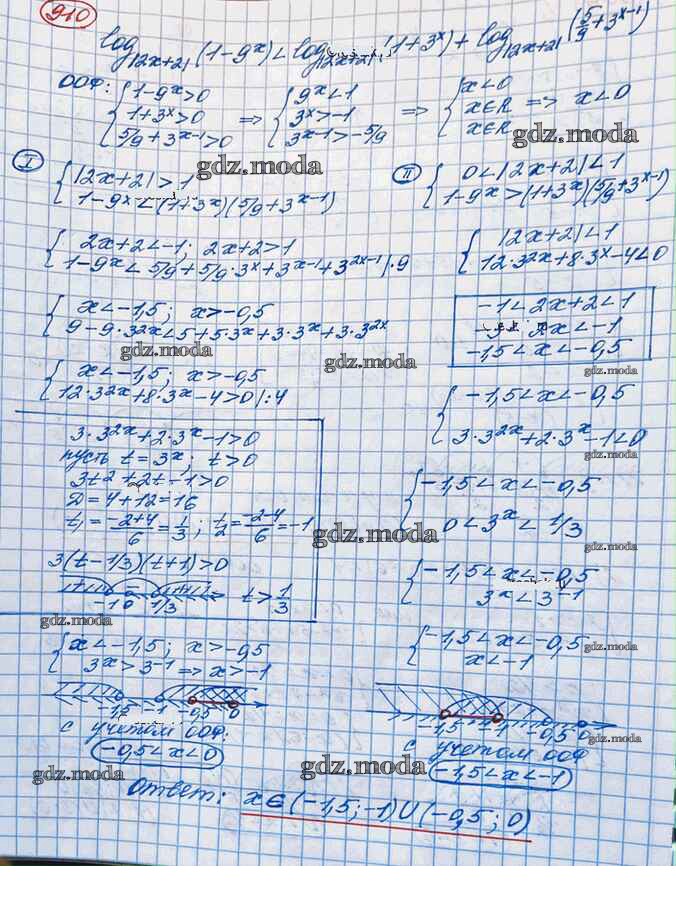 910
log|2x+2| (1-9^x) < log|2x+2| (1+3^x) + log|2x+2| (5/9+3^(x-1))
ООФ: { 1-9^x>0 ; 1+3^x>0 ; 5/9+3^(x-1)>0 => { 9^x<1 ; 3^x>-1 ; 3^(x-1)>-5/9 => { x<0 ; x∈R ; x∈R => x<0
gdz.moda
gdz.moda
I { |2x+2|>1
1-9^x<(1+3^x)(5/9+3^(x-1))
{ 2x+2<-1; 2x+2>1
1-9^x<5/9+5/9·3^x+3^(x-1)+3^(2x-1) |·9
{ x<-1,5; x>-0,5
9-9·3^(2x)<5+5·3^x+3·3^x+3·3^(2x)
gdz.moda
gdz.moda
{ x<-1,5; x>-0,5
12·3^(2x)+8·3^x-4>0 |:4
3·3^(2x)+2·3^x-1>0
пусть t=3^x; t>0
3t²+2t-1>0
D=4+12=16
t₁=(-2+4)/6=1/3; t₂=(-2-4)/6=-1
3(t-1/3)(t+1)>0
+ - +
-1 0 1/3 t>1/3
gdz.moda
{ x<-1,5; x>-0,5
3^x>3^(-1) => x>-1
-1,5 -1 -0,5 0
с учетом ООФ:
-0,5<x<0
gdz.moda
II { 0<|2x+2|<1
1-9^x>(1+3^x)(5/9+3^(x-1))
gdz.moda
{ |2x+2|<1
12·3^(2x)+8·3^x-4<0
gdz.moda
-1<2x+2<1
-3<2x<-1
-1,5<x<-0,5
gdz.moda
{ -1,5<x<-0,5
3·3^(2x)+2·3^x-1<0
gdz.moda
{ -1,5<x<-0,5
0<3^x<1/3
gdz.moda
gdz.moda
{ -1,5<x<-0,5
3^x<3^(-1)
gdz.moda
{ -1,5<x<-0,5
x<-1
gdz.moda
-1,5 -1 -0,5 0
gdz.moda
с учетом ООФ
-1,5<x<-1
gdz.moda
Ответ: x∈(-1,5;-1)∪(-0,5;0)